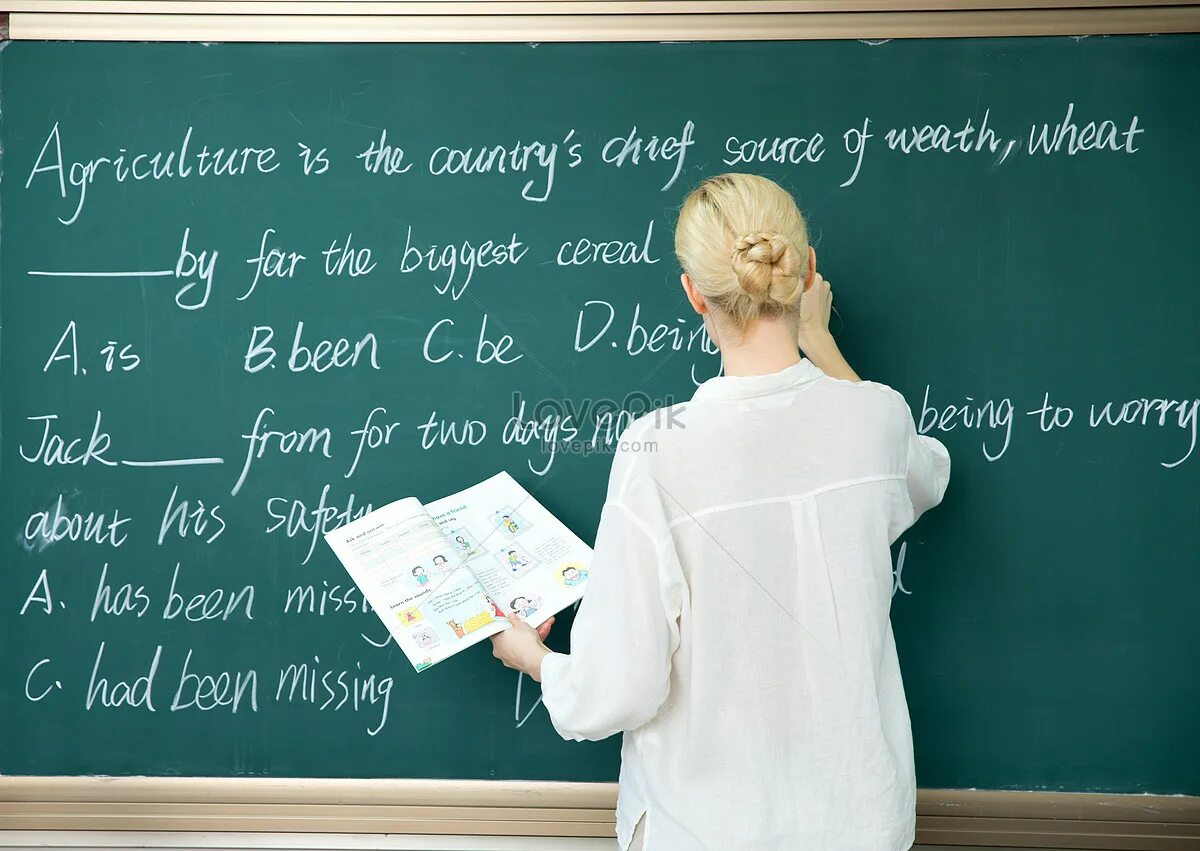 Agriculture is the country's chief source of weath, wheat
______ by far the biggest cereal
A. is B. been C. be D. being
Jack ______ from for two days being to worry
about his safety
A. has been
C. had been missing
Ask and answer
Learn the sounds
lovepik.com